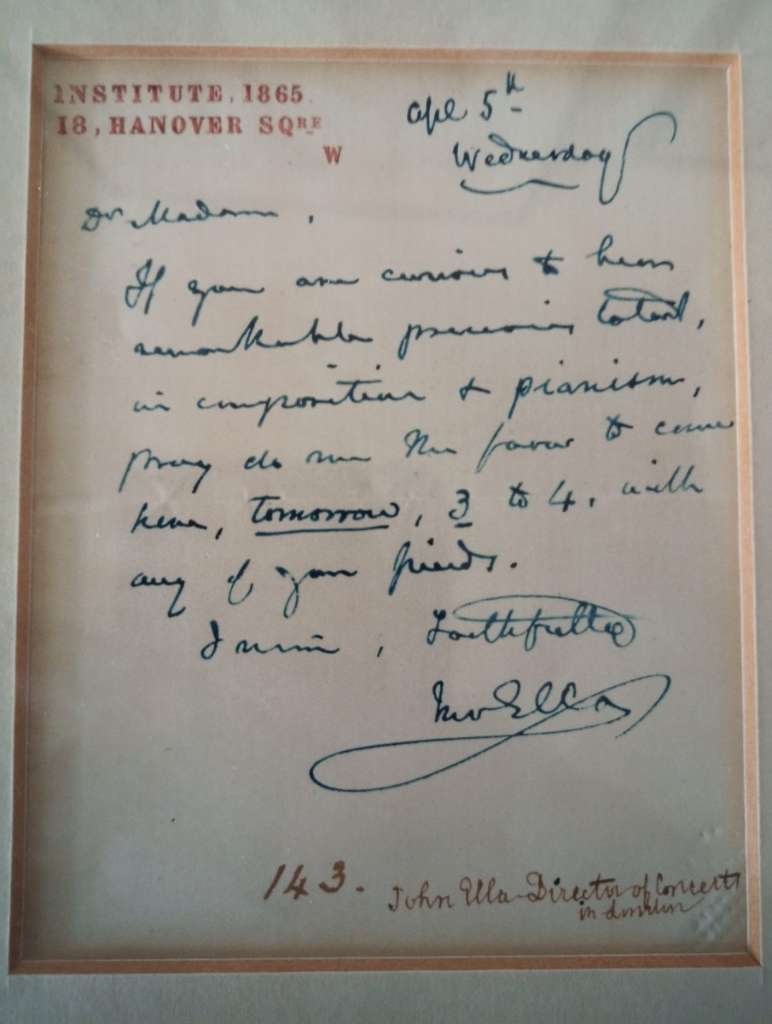 INSTITUTE, 1865.
18, HANOVER SQRE
W
Apl 5th
Wednesday
Dr Madam,
If you are curious to hear
remarkable precocious talent,
in composition & pianism,
pray do me the favor to come
here, tomorrow, 3 to 4. with
any of your friends.
Faithfully
Ella
143.
John Ella - Director of Concerts
in London